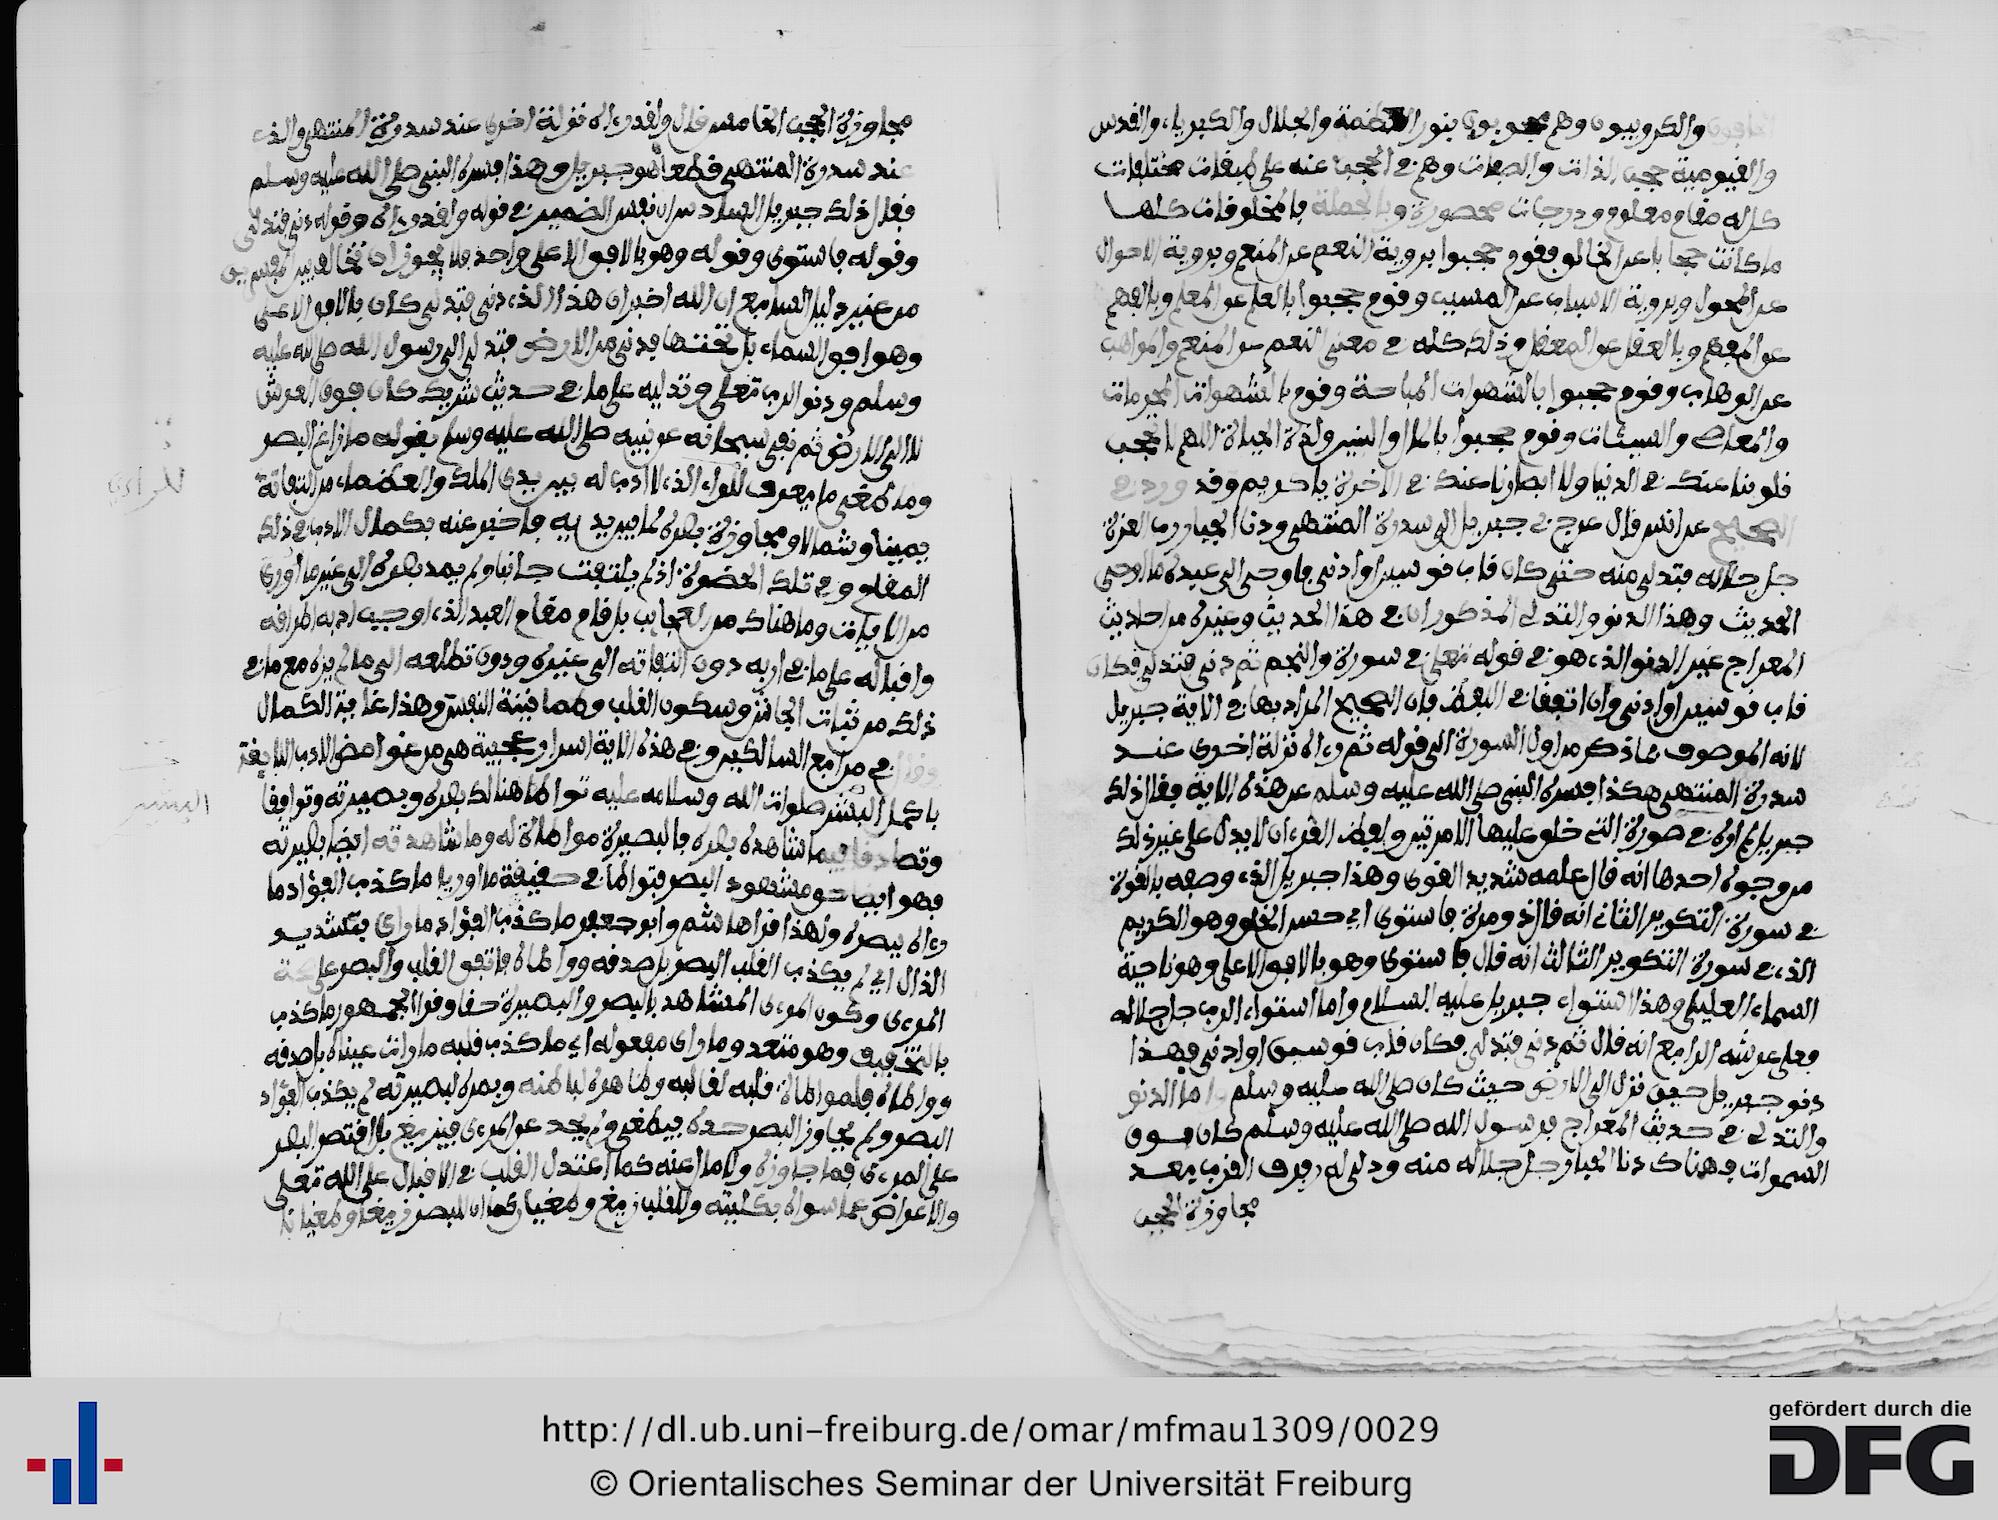 الحافون والكروبيون وهم محجوبون بنور العظمة والجلال والكبرياء والقدس
والقيومية حجب الذات والصفات وهم في الحجب عنه على طبقات مختلفات
كل له مقام معلوم ودرجات محصورة وبالجملة فالمخلوقات كلها
ما كانت حجابا عن الخالق فقوم حجبوا بروية النعم عن المنعم وبروية الاحوال
عن المحول وبروية الاسباب عن المسبب وقوم حجبوا بالعلم عن المعلم وبالفهم
عن المفهم وبالعقل عن المعقل وذلك كله في معنى النعم عن المنعم والمواهب
عن الوهاب وقوم حجبوا بالشهوات المباحة وقوم بالشهوات المحرمات
والمعاصي والسيئات وقوم حجبوا بالمال والبنين وزينة الحياة اللهم لا تحجب
قلوبنا عنك في الدنيا ولا ابصارنا عنك في الاخرة يا كريم وقد ورد في
الصحيح عن انس قال عرج بي جبريل الى سدرة المنتهى ودنا الجبار رب العزة
جل جلاله فتدلى منه حتى كان قاب قوسين او ادنى فاوحى الى عبده ما اوحى
الحديث وهذا الدنو والتدلي المذكوران في هذا الحديث وغيره من احاديث
المعراج غير الدنو الذي هو في قوله تعلى في سورة والنجم ثم دنى فتدلى فكان
قاب قوسين او ادنى وان اتفقا في اللفظ فان الصحيح المراد بها في الاية جبريل
لانه الموصوف بما ذكر من اول السورة الى قوله ثم رءاه نزلة اخرى عند
سدرة المنتهى هكذا فسره النبي صلى الله عليه وسلم عن هذه الاية فقال ذلك
جبريل لم اره في صورة التي خلق عليها الا مرتين ولفظ القرءان لا يدل على غير ذلك
من وجوه احدها انه قال علمه شديد القوى وهذا جبريل الذي وصفه بالقوة
في سورة التكوير الثاني انه قال ذو مرة فاستوى اي حسن الخلق وهو الكريم
الذي في سورة التكوير الثالث انه قال فاستوى وهو بالافق الاعلى وهو ناحية
السماء العليا وهذا استواء جبريل عليه السلام واما استواء الرب جل جلاله
فعلى عرشه الرابع انه قال ثم دنى فتدلى فكان قاب قوسين او ادنى فهذا
دنو جبريل حين نزل الى الارض حيث كان صلى الله عليه وسلم واما الدنو
والتدلي في حديث المعراج فرسول الله صلى الله عليه وسلم كان فوق
السموات فهناك دنا الجبار جل جلاله منه ودلى له رفرف القرب بعد
مجاوزة الحجب
مجاوزة الحجب الخامس قال ولقد رءاه نزلة اخرى عند سدرة المنتهى والذي
عند سدرة المنتهى قطعا هو جبريل وهذا فسره النبي صلى الله عليه وسلم
فقال ذلك جبريل السادس ان نفس الضمير في قوله ولقد رءاه وقوله دنى فتدلى
وقوله فاستوى وقوله وهو بالافق الاعلى واحد فلا يجوز ان تخالف بين المفسرين
من غير دليل السابع ان الله اخبر ان هذا الذي دنى فتدلى كان بالافق الاعلى
وهو افق السماء بل تحتها فدنى من الارض فتدلى الى رسول الله صلى الله عليه
وسلم ودنو الرب تعلى وتدليه على ما في حديث شريك كان فوق العرش
لا الى الارض ثم نفى سبحانه عن نبيه صلى الله عليه وسلم بقوله ما زاغ البصر
وما طغى ما يعرف للراء الذي لا ادب له بين يدي الملك والعظماء من التفاتة
يمينا وشمالا ومجاوزة بصره لما بين يديه فاخبر عنه بكمال الادب في ذلك
المقام وفي تلك الحضرة اذ لم يلتفت جانبا ولم يمد بصره الى غير ما اورى
من الايات وما هناك من العجايب بل قام مقام العبد الذي اوجب ادبه اطراقه
واقباله على ما في اربه دون التفاته الى غيره ودون تطلعه الى ما لم يره مع ما في
ذلك من ثبات الجاش وسكون القلب وطمانينة النفس وهذا غاية الكمال
في مدامع السالكين وفي هذه الاية اسرار عجيبة هي من غوامض الادب اللايقة
باكمل البشر صلوات الله وسلامه عليه تواطا هنالك بصره وبصيرته وتوافقا
وتصادقا فيما شاهده بصره فالبصيرة مواطاة له وما شاهدته ايضا بصيرته
فهو ايضا حق مشهود البصر فتواطا في حقيقة ما اوريا ما كذب الفؤاد ما
رءاه ببصره ولهذا قرا هاشم وابو جعفر ما كذب الفؤاد ما راى بتشديد
الذال اي لم يكذب القلب البصر بل صدقه وواطاه فاتفق القلب والبصر على صحة
المرءى وكون المرءى المشاهد بالبصر والبصيرة حقا وقرا الجمهور ما كذب
بالتخفيف وهو متعد وما راى مفعوله اي ما كذب قلبه ما رات عيناه بل صدقه
وواطاه فلمواطاة قلبه لقالبه وظاهره لباطنه وبصره لبصيرته لم يكذب الفؤاد
البصر ولم يجاوز البصر حده فيطغى ولم يحد عن المرءى فيزيغ بل اقتصر البصر
على المرءى فما جاوزه ولا مال عنه كما اعتدل القلب في الاقبال على الله تعلى
والاعراض عما سواه بكليته وللقلب زيغ وطغيان كما ان للبصر زيغا وطغيانا
للراءى
البشر
http://dl.ub.uni-freiburg.de/omar/mfmau1309/0029
© Orientalisches Seminar der Universität Freiburg
gefördert durch die
DFG